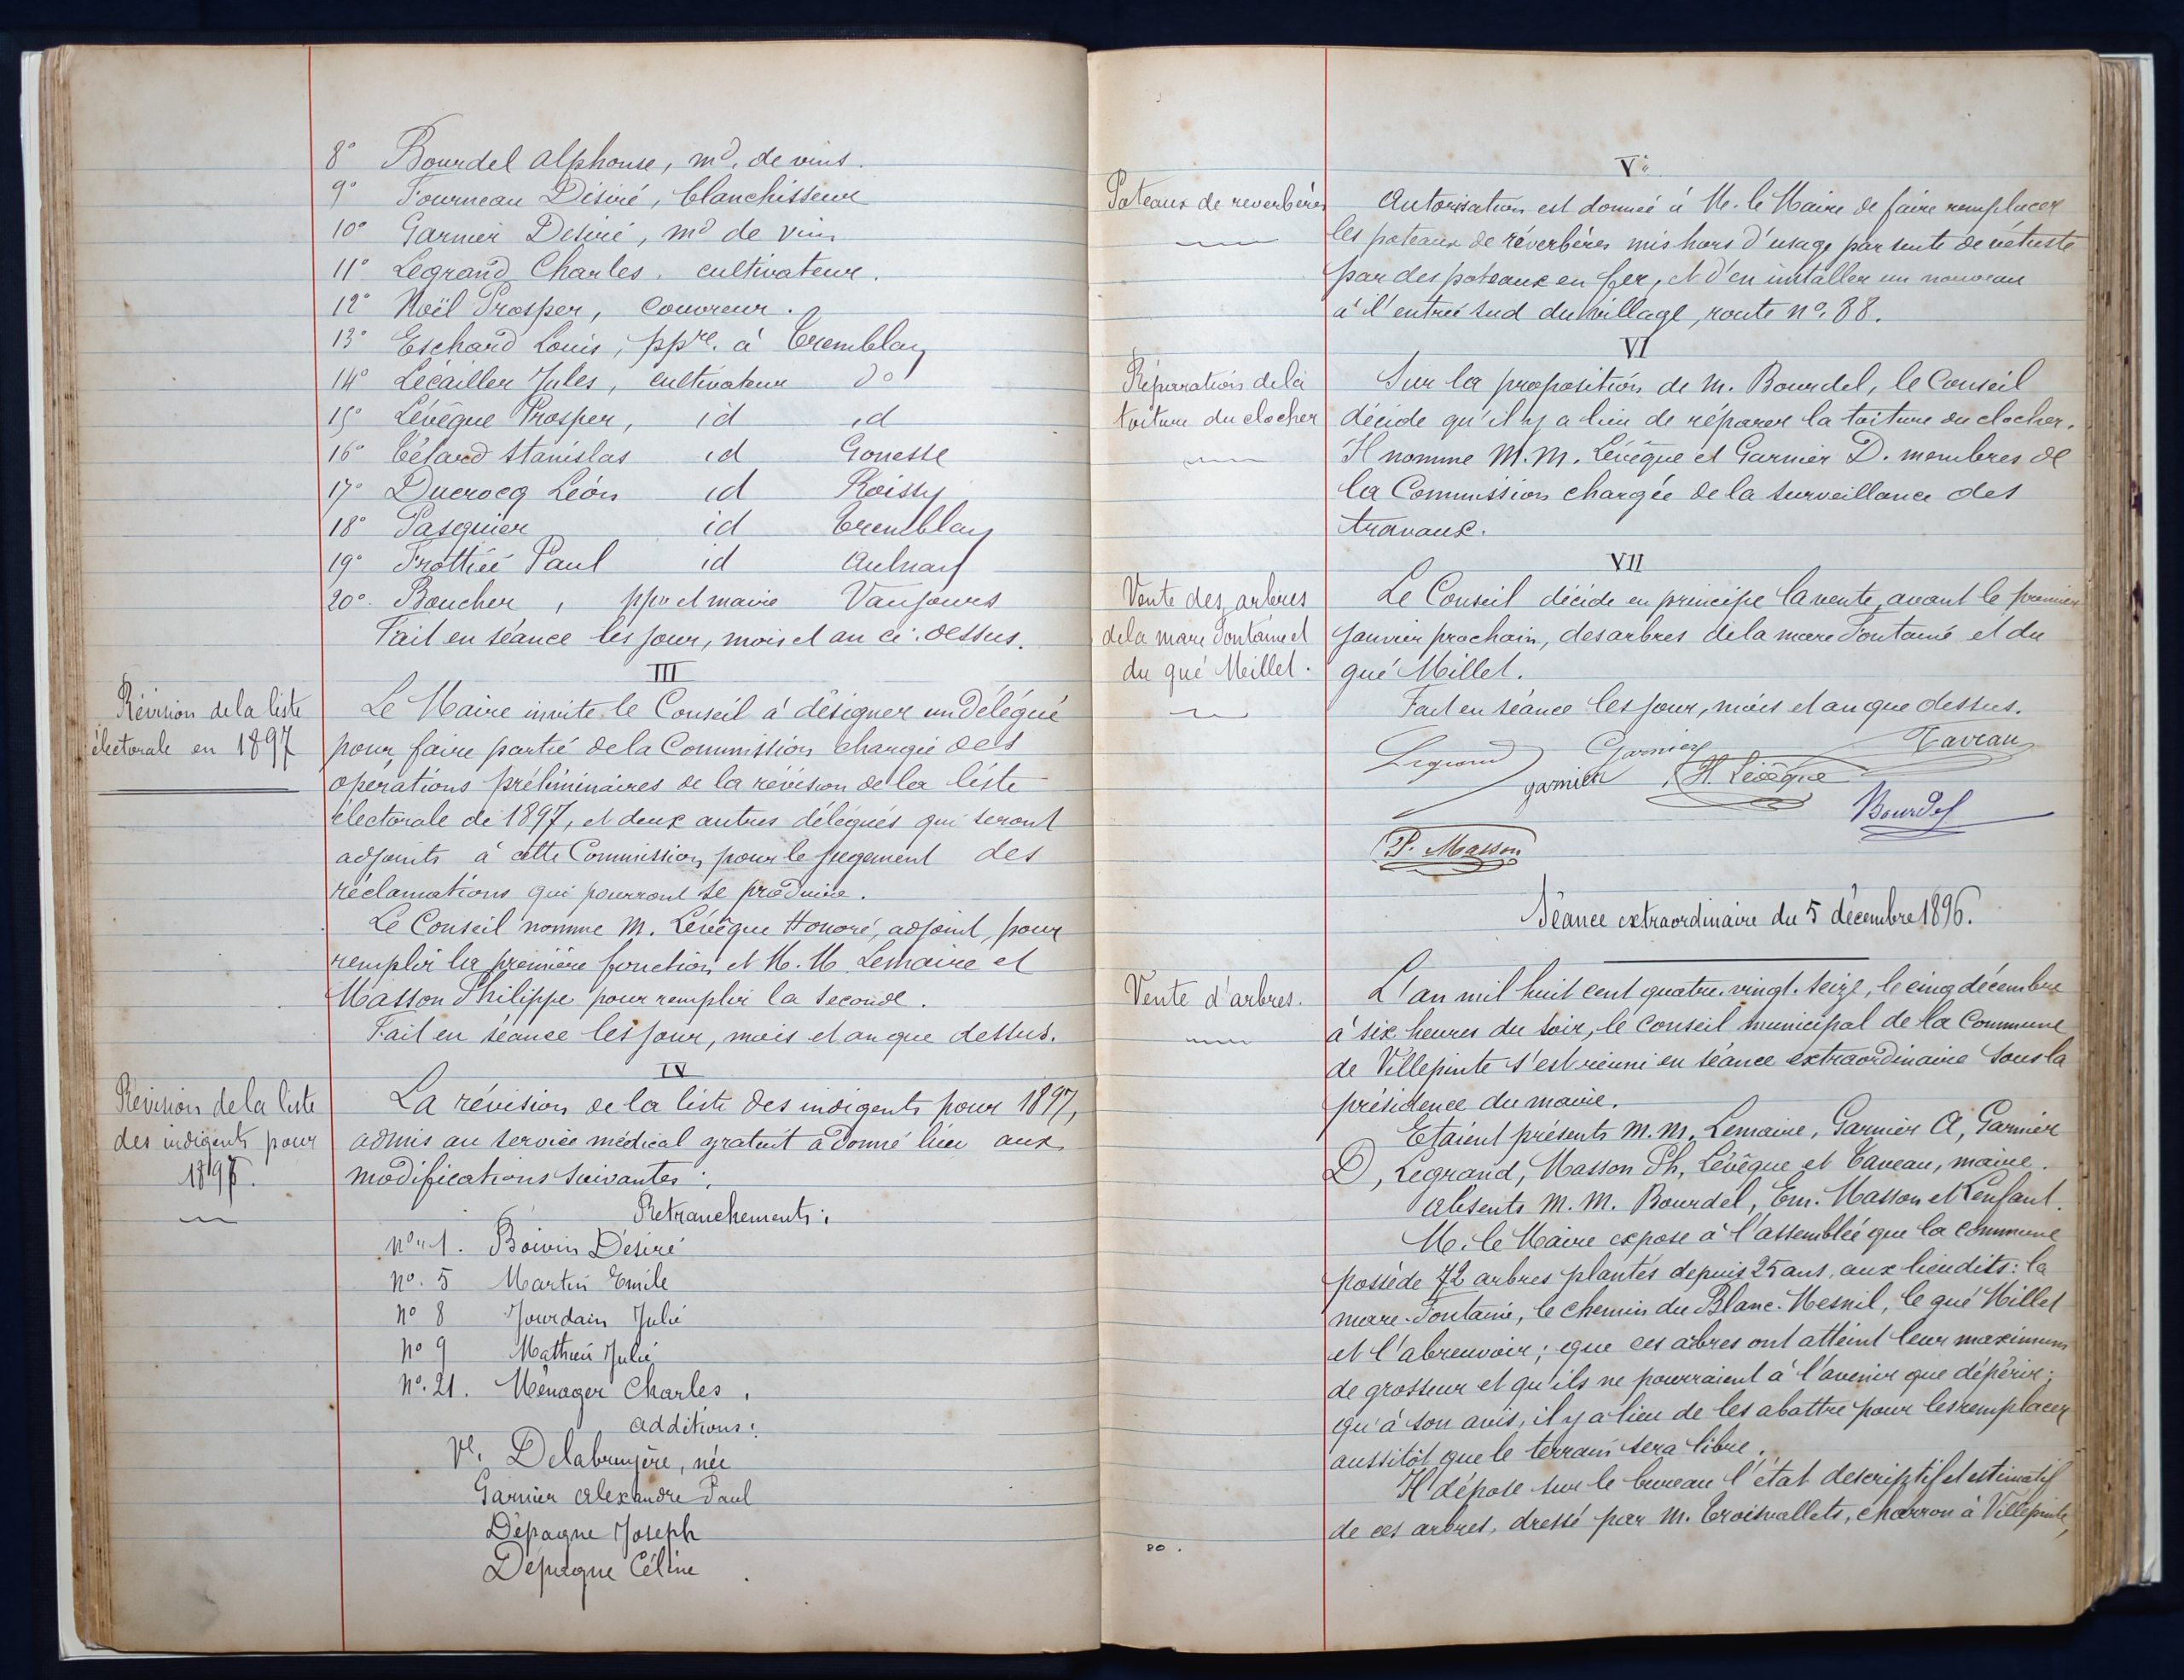 8° Bourdel Alphonse, md. de vins.
9° Fourneau Désiré, blanchisseur
10° Garnier Désiré, md de vins
11° Legrand Charles, cultivateur.
12° Noël Prosper, couvreur.
13° Eschard Louis, ppre. à Tremblay
14° Lecailler Jules, cultivateur do
15° Lévêque Prosper, id id
16° Tétard Stanislas id Gonesse
17° Ducrocq Léon id Roissy
18° Pasquier id Tremblay
19° Frottiée Paul id Aulnay
20°. Boucher, ppre et maire Vaujours
Fait en séance les jour, mois et an ci-dessus.
III
Révision de la liste
électorale en 1897
Le Maire invite le Conseil à désigner un Délégué
pour faire partie de la Commission chargée des
opérations préliminaires de la révision de la liste
électorale de 1897, et deux autres délégués qui seront
adjoints à cette Commission pour le jugement des
réclamations qui pourront se produire.
Le Conseil nomme M. Lévêque Honoré, adjoint, pour
remplir la première fonction et M. M. Lemaire et
Masson Philippe pour remplir la seconde.
Fait en séance les jour, mois et an que dessus.
IV
Révision de la liste
des indigents pour
1897.
La révision de la liste des indigents pour 1897,
admis au service médical gratuit a donné lieu aux
modifications suivantes:
Retranchements:
nos 1. Boivin Désiré
no. 5 Martin Emile
no 8 Jourdain Julie
no 9 Mathieu Julie
no. 21. Ménager Charles.
additions:
Ve. Delabruyère, née
Garnier Alexandre Paul
Dépagne Joseph
Dépagne Céline
V°
Poteaux de reverbères
Autorisation est donnée à M. le Maire de faire remplacer
les poteaux de réverbères mis hors d'usage par suite de vétusté
par des poteaux en fer, et d'en installer un nouveau
à l'entrée sud du village, route no. 88.
VI
Réparation de la
toiture du clocher
Sur la proposition de M. Bourdel, le Conseil
décide qu'il y a lieu de réparer la toiture du clocher.
Il nomme M.M. Lévêque et Garnier D. membres de
la Commission chargée de la surveillance des
travaux.
VII
Vente des arbres
de la mare Fontaine et
du gué Millet.
Le Conseil décide en principe la vente, avant le premier
janvier prochain, des arbres de la mare Fontaine et du
gué Millet.
Fait en séance les jour, mois et an que dessus.
Legrand Garnier Taveau
garnier H. Lévêque
Bourdel
P. Masson
Séance extraordinaire du 5 décembre 1896.
Vente d'arbres.
L'an mil huit cent quatre-vingt-seize, le cinq décembre
à six heures du soir, le Conseil municipal de la Commune
de Villepinte s'est réuni en séance extraordinaire sous la
présidence du maire.
Etaient présents M. M. Lemaire, Garnier A, Garnier
D, Legrand, Masson Ph, Lévêque et Taveau, maire.
Absents M. M. Bourdel, Em. Masson et Lenfant.
M. le Maire expose à l'assemblée que la commune
possède 72 arbres plantés depuis 25 ans, aux lieudits: la
mare-Fontaine, le chemin du Blanc-Mesnil, le gué Millet
et l'abreuvoir; que ces arbres ont atteint leur maximum
de grosseur et qu'ils ne pourraient à l'avenir que dépérir;
qu'à son avis, il y a lieu de les abattre pour les remplacer
aussitôt que le terrain sera libre.
Il dépose sur le bureau l'état descriptif et estimatif
de ces arbres, dressé par M. Troisvallets, charron à Villepinte,
80.